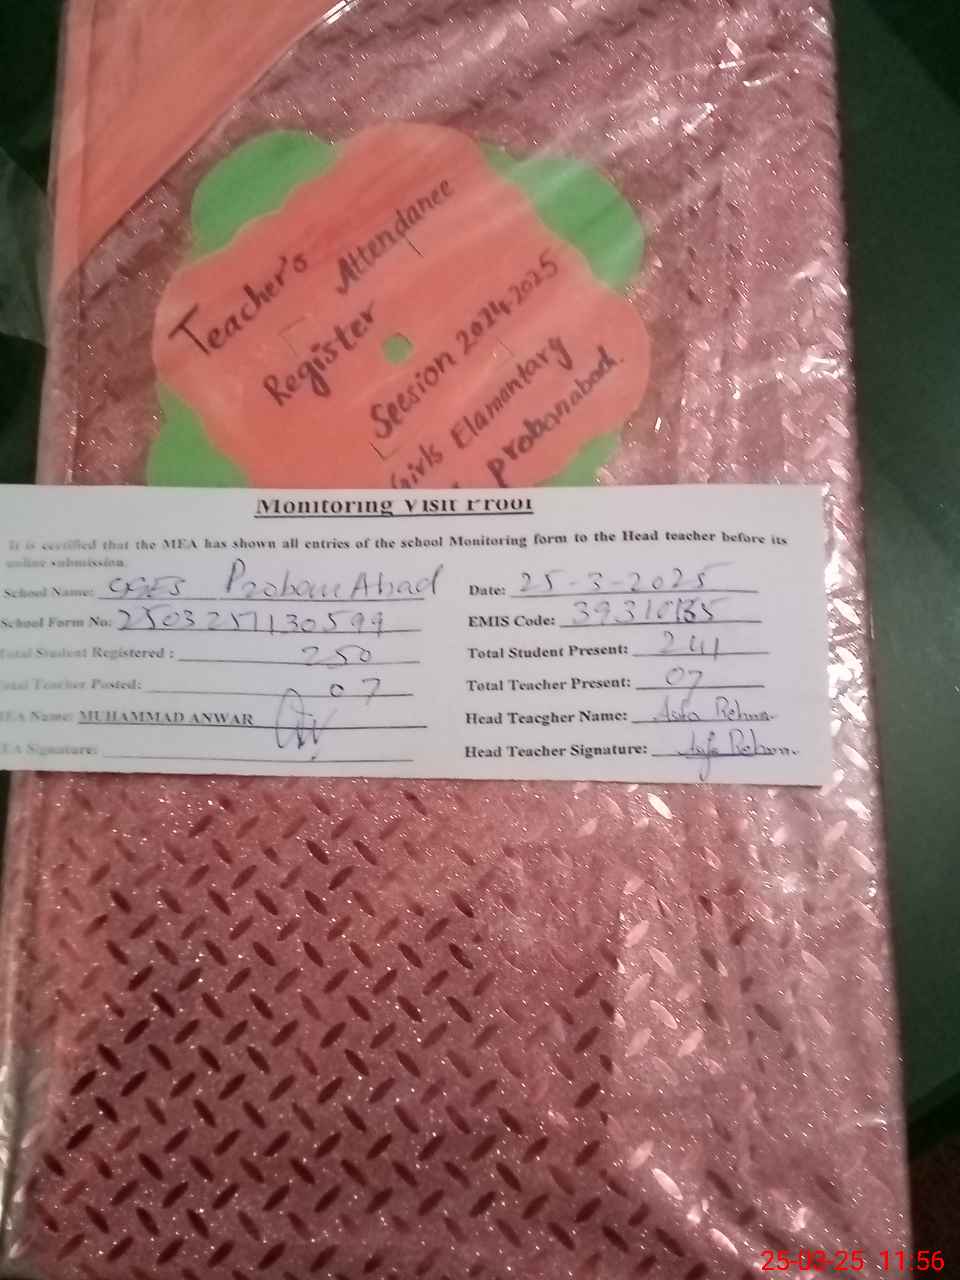 Teacher's
Attendance
Register
Seesion 2024-2025
Girls Elamantary
Probanabad.
Monitoring Visit Proof
It is certified that the MEA has shown all entries of the school Monitoring form to the Head teacher before its
online submission.
School Name: GGES Proban Abad Date: 25-3-2025
School Form No: EMIS Code:
Total Student Registered : 250 Total Student Present: 241
Total Teacher Posted: 07 Total Teacher Present: 07
MEA Name: MUHAMMAD ANWAR Head Teacgher Name: Asfa Rehman
MEA Signature: Head Teacher Signature: Asfa Rehman
25-03-25 11:56